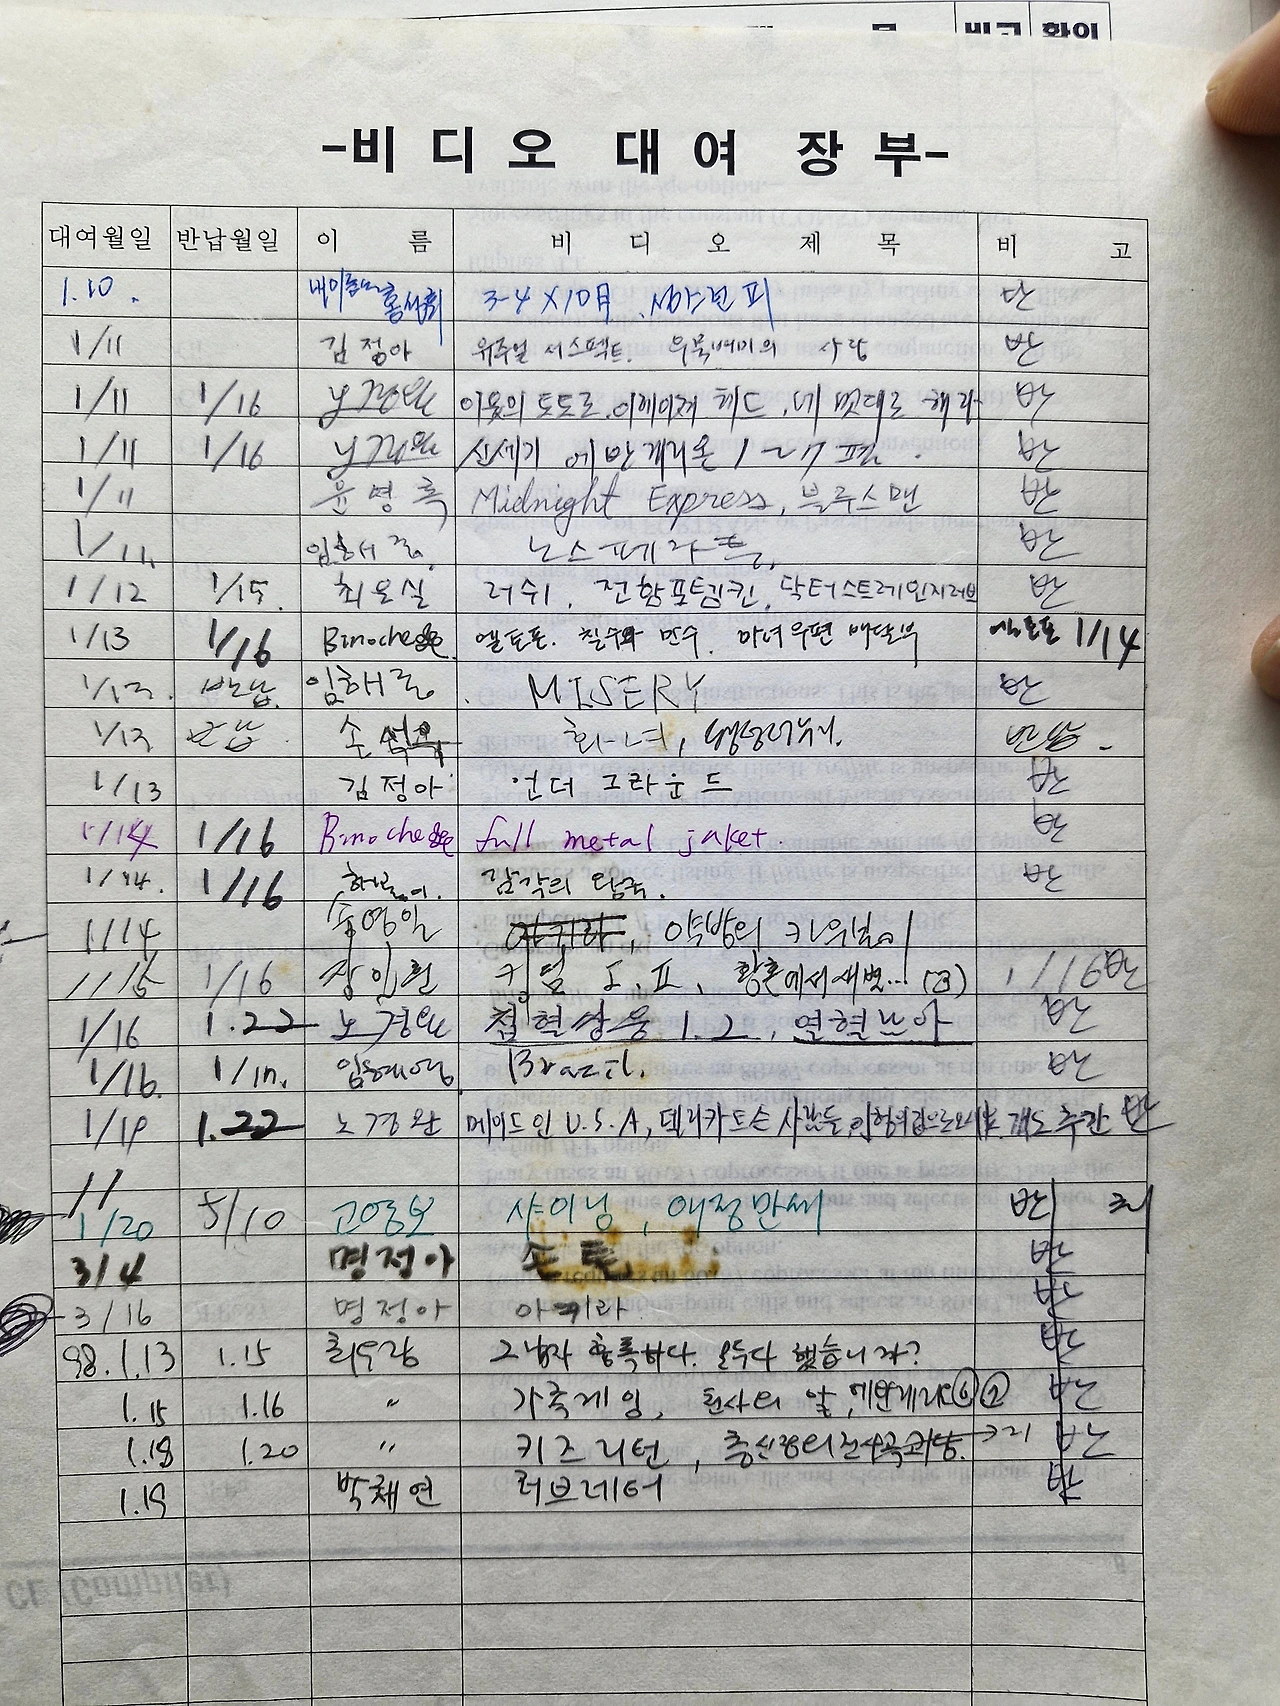 비고 확인
-비 디 오 대 여 장 부-
대여월일 반납월일 이 름 비 디 오 제 목 비 고
1.10. 3-4 X 10日
1/11 김정아 유주얼 서스펙트. 우묵배미의 사랑 반
1/11 1/16 이웃의 토토로, 이레이저 헤드, 네 멋대로 해라 반
1/11 1/16 신세기 에반게리온 1~17편. 반
1/11 윤영혹 Midnight Express, 블루스맨 반
1/11. 임해리. 노스페라투, 반
1/12 1/15. 최은실 러쉬. 전함포템킨. 닥터스트레인지러브 반
1/13 1/16 Binoche 엘토포. 칠수와 만수. 마녀우편 배달부 엘토포 1/14
1/13. 반납. MISERY 반
1/13 반납 손 화녀, 반납.
1/13 김정아 언더그라운드 반
1/14 1/16 Binoche full metal jaket. 반
1/14. 1/16 감각의 왕국. 반
1/14 송영일 약방의 카우보이
1/15 1/16 장입원 킹덤 I, II, 황혼에서 새벽... (3) 1/16반
1/16 1.22 노경완 첩혈쌍웅 1.2, 열혈남아 반
1/16. 1/17. Brazil. 반
1/19 1.22 노경완 메이드 인 U.S.A, 델리카트슨 사람들, 인형의집으로오세요. 개도 추간 반
1/
1/20 5/10 고영모 샤이닝, 애정만세 반
3/4 명정아 반
3/16 명정아 아키라 반
98.1.13 1.15 최우람 그남자 흉폭하다. 모두다 했습니까? 반
1.15 1.16 〃 가족게임, 천사의 알, 에반게리온 ① ② 반
1.18 1.20 〃 키즈 리턴, 반
1.19 박채연 러브레터 반
CL (Compiler)